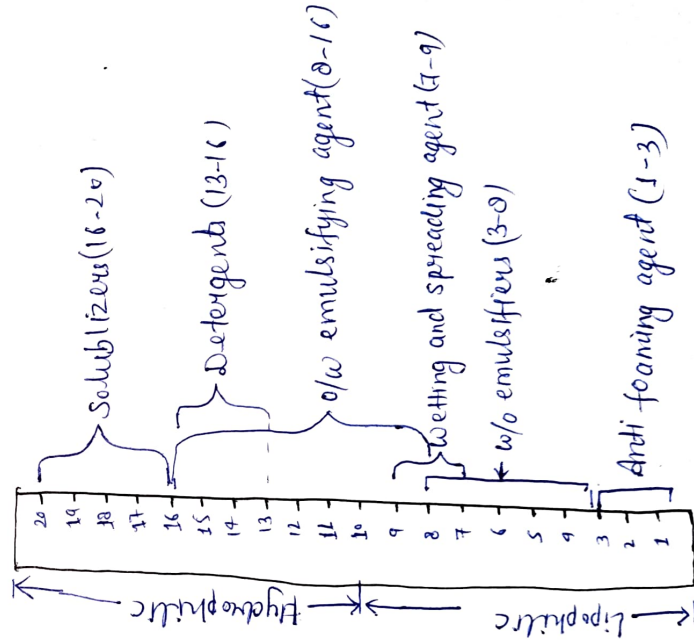 Solublizers (16-20)
Detergents (13-16)
O/W emulsifying agent (8-16)
Wetting and spreading agent (7-9)
W/O emulsifiers (3-8)
Anti foaming agent (1-3)
20
19
18
17
16
15
14
13
12
11
10
9
8
7
6
5
4
3
2
1
Hydrophilic
Lipophilic